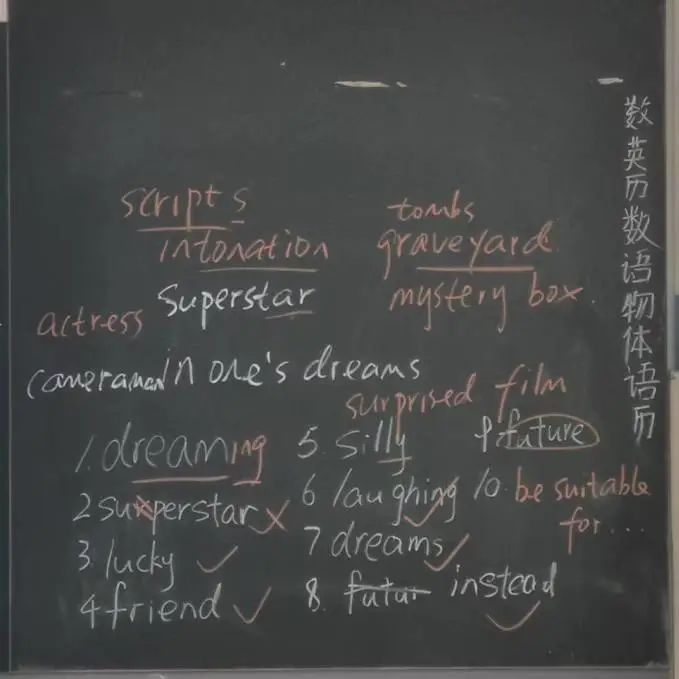 scripts
intonation
superstar
actress
cameraman in one's dreams
tombs
graveyard
mystery box
surprised film
1. dreaming
2 superstar ×
3. lucky ✓
4 friend ✓
5. silly
6 laughing ✓
7 dreams ✓
8. futur instead ✓
9. future
10. be suitable
for...
数英历数语物体语历